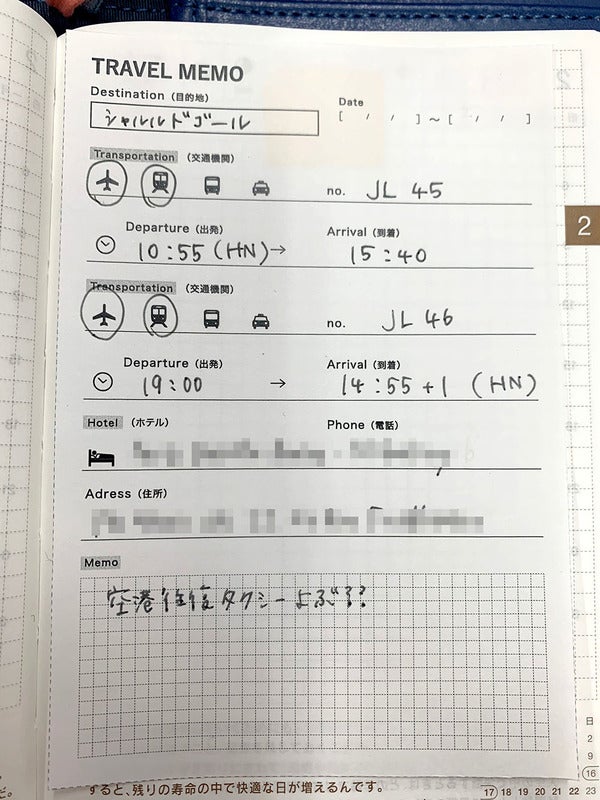 TRAVEL MEMO
Destination (目的地)
シャルルドゴール
Date
[ / / ] ~ [ / / ]
Transportation (交通機関)
no. JL 45
Departure (出発)
Arrival (到着)
10:55 (HN) → 15:40
Transportation (交通機関)
no. JL 46
Departure (出発)
Arrival (到着)
19:00 → 14:55 +1 (HN)
Hotel (ホテル)
Phone (電話)
Adress (住所)
Memo
空港往復タクシーよぶ??
2
すると、残りの寿命の中で快適な日が増えるんです。
だ。
日
2
9
16
17 18 19 20 21 22 23